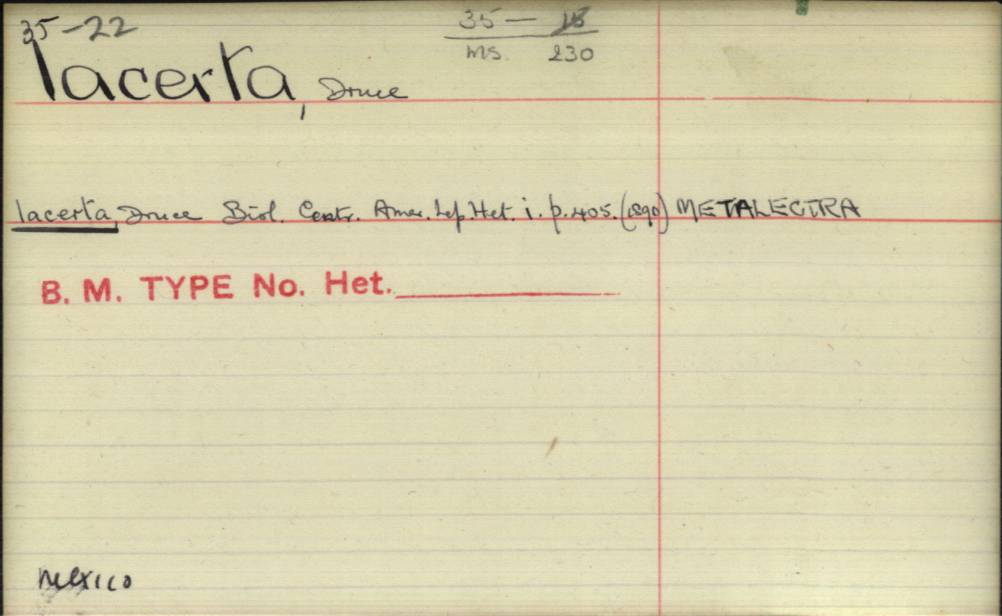 35-22
35 — 15
ms. 230
lacerta, Druce
lacerta, Druce Biol. Centr. Amer. Lep. Het. i. p. 405. (1890) METALECTRA
B. M. TYPE No. Het.
Mexico